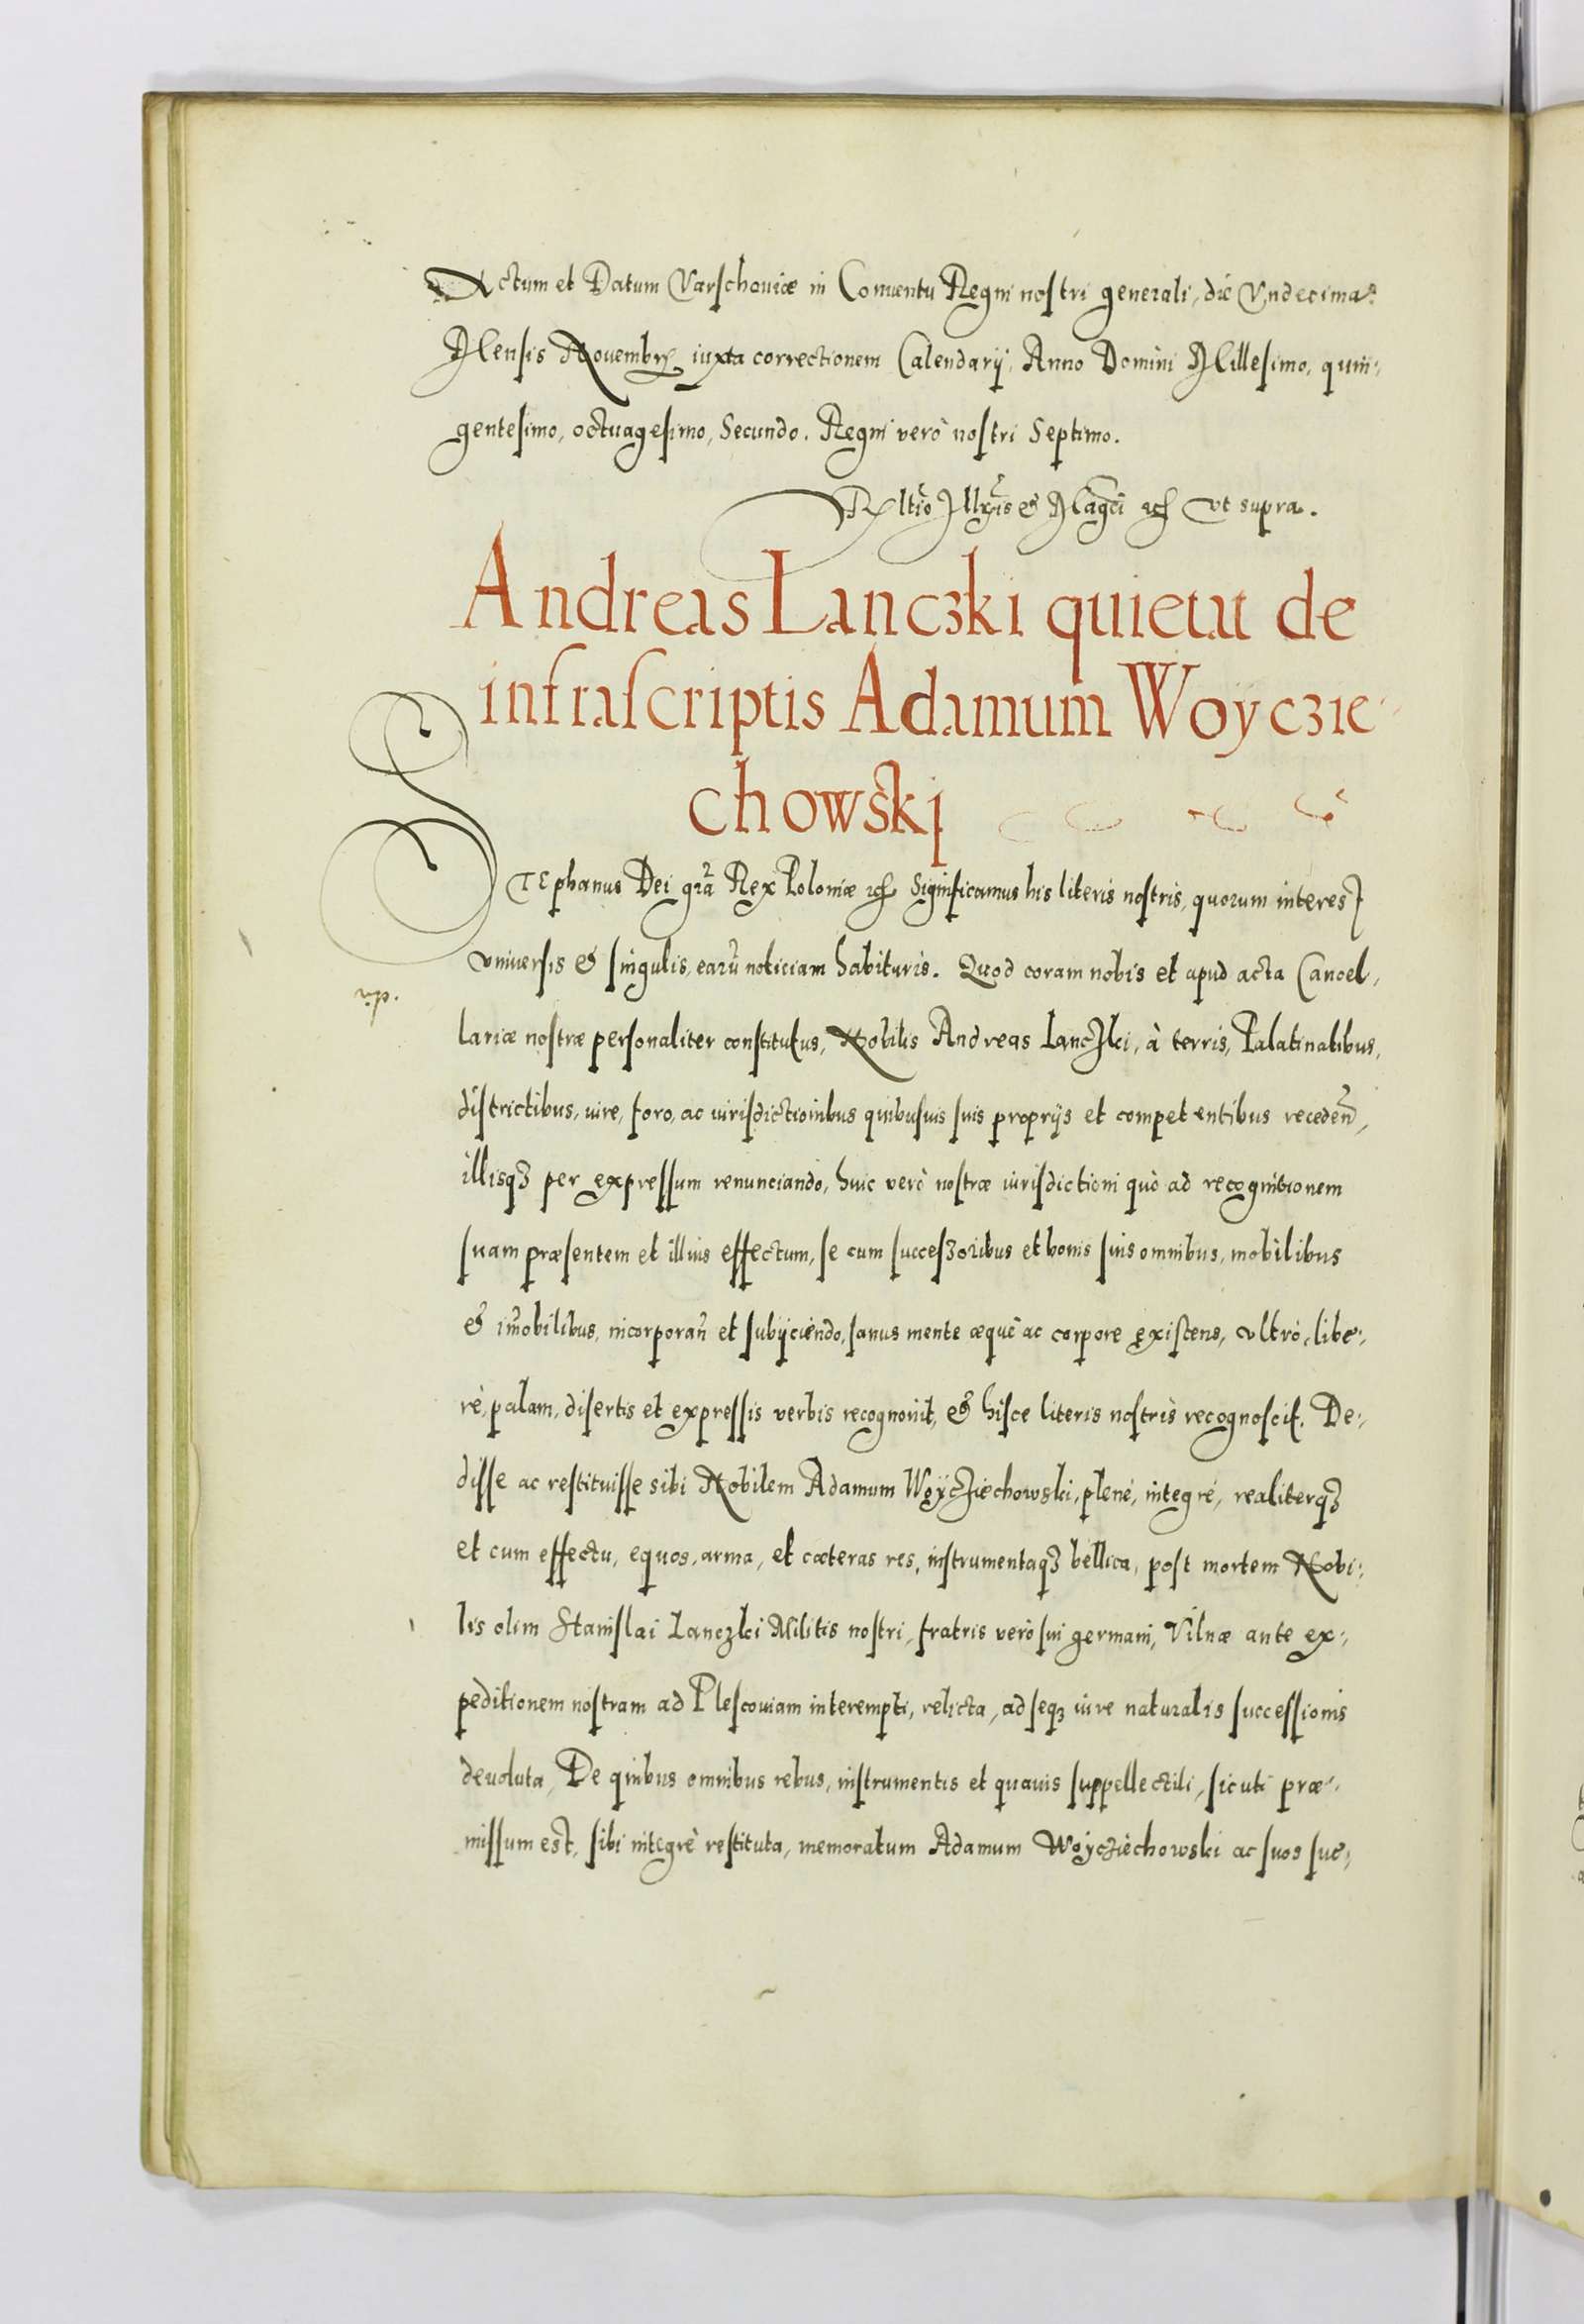 Actum et Datum Varschouiæ in Conuentu Regni nostri generali, die Vndecima
Mensis Nouembr iuxta correctionem Calendarÿ, Anno Domini Millesimo, quin-
gentesimo, octuagesimo, Secundo. Regni verò nostri Septimo.
Rltĩo Illr̃is & Mag̃ci ut supra.
Andreas Lanczki quietat de
infrascriptis Adamum Woyczie-
chowski
Stephanus Dei gr̃a Rex Poloniæ Significamus his literis nostris, quorum interest
vniuersis & singulis, earũ noticiam habituris. Quod coram nobis et apud acta Cancel-
lariæ nostræ personaliter constitutus, Nobilis Andreas Lanczki, à terris, Palatinatibus,
districtibus, iure, foro, ac iurisdictionibus quibusuis suis proprijs et competentibus recedeñ,
illisqꝫ per expressum renunciando, huic verò nostræ iurisdictioni quò ad recognitionem
suam præsentem et illius effectum, se cum successoribus et bonis suis omnibus, mobilibus
& im̃obilibus, incorporañ et subijciendo, sanus mente æquè ac corpore existens, vltrò, libe-
rè, palam, disertis et expressis verbis recognouit, & hisce literis nostris recognoscit. De-
disse ac restituisse sibi Nobilem Adamum Woyczièchowski, plenè, integrè, realiterqꝫ
et cum effectu, equos, arma, et cæteras res, instrumentaqꝫ bellica, post mortem Nobi-
lis olim Stanislai Lanczki Militis nostri, fratris verò sui germani, Vilnæ ante ex-
peditionem nostram ad Plescouiam interempti, relicta, ad seqꝫ iure naturalis successionis
deuoluta, De quibus omnibus rebus, instrumentis et quauis suppellectili, sicuti præ-
missum est, sibi integrè restituta, memoratum Adamum Woyczièchowski ac suos suc-